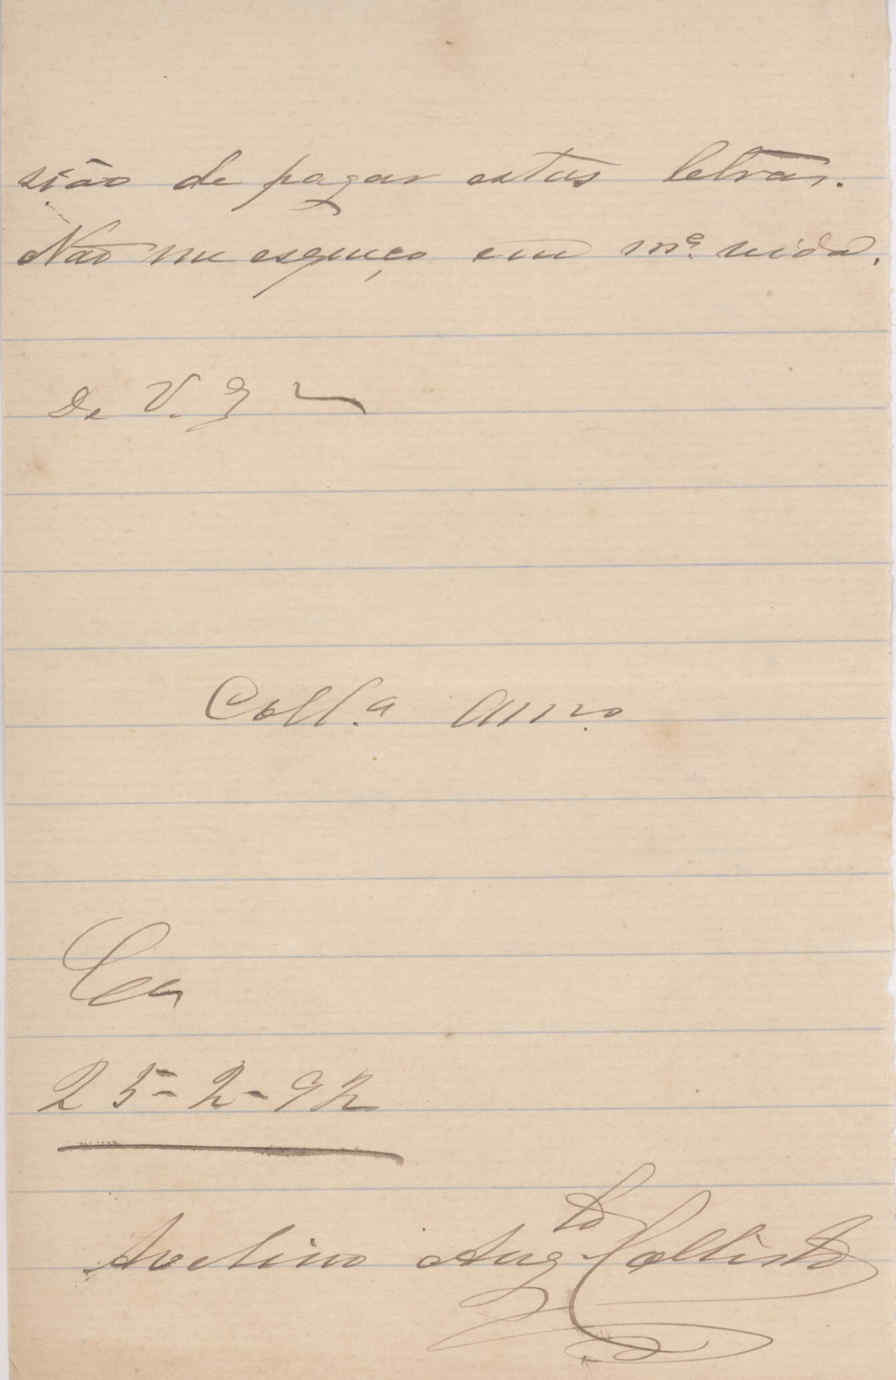 sião de pagar estas letras.
Não me esqueço em mª. vida.
De V. Eª
Coll.ª Amº
Cea
25-2-92
Avelino Aug.to Callisto